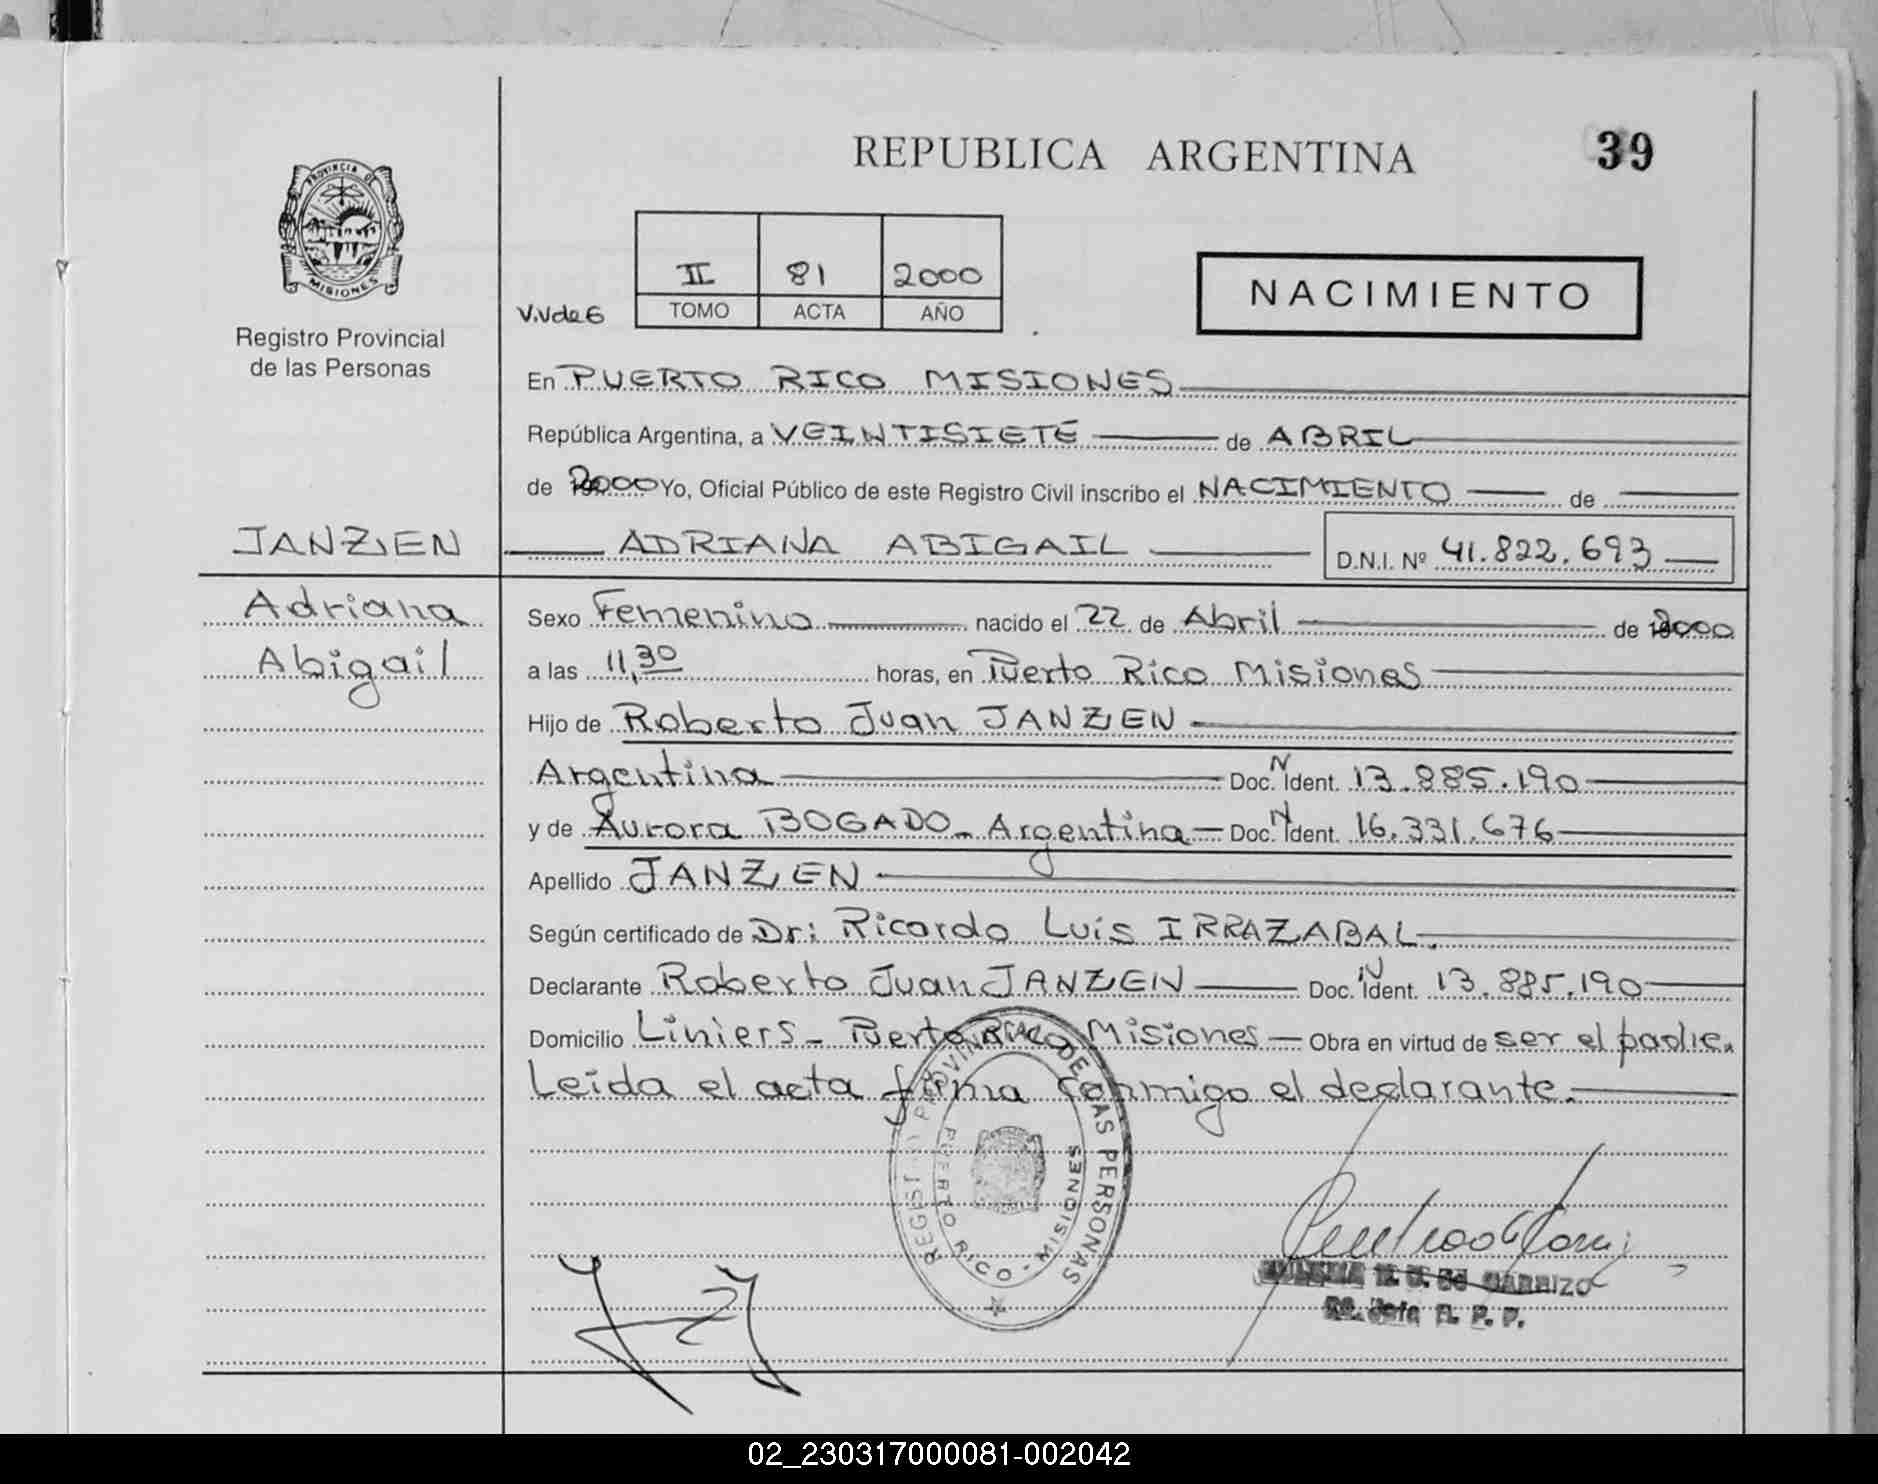 REPUBLICA ARGENTINA
39
PROVINCIA DE
MISIONES
Registro Provincial
de las Personas
II 81 2000
TOMO ACTA AÑO
NACIMIENTO
En PUERTO RICO MISIONES
República Argentina, a VEINTISIETE de ABRIL
de 2000 Yo, Oficial Público de este Registro Civil inscribo el NACIMIENTO de
JANZEN ADRIANA ABIGAIL D.N.I. Nº 41.822.693
Adriana
Abigail
Sexo Femenino nacido el 22 de Abril de 2000
a las 11,30 horas, en Puerto Rico Misiones
Hijo de Roberto Juan JANZEN
Argentina Doc. N Ident. 13.885.190
y de Aurora BOGADO - Argentina - Doc. N Ident. 16.331.676
Apellido JANZEN
Según certificado de Dr: Ricardo Luis IRRAZABAL.
Declarante Roberto Juan JANZEN Doc. N Ident. 13.885.190
Domicilio Liniers - Puerto Rico Misiones - Obra en virtud de ser el padre.
Leida el acta firma conmigo el declarante.
REGISTRO PROVINCIAL DE LAS PERSONAS
PUERTO RICO - MISIONES
DE CARRIZO
Jefa R. P. P.
02_230317000081-002042